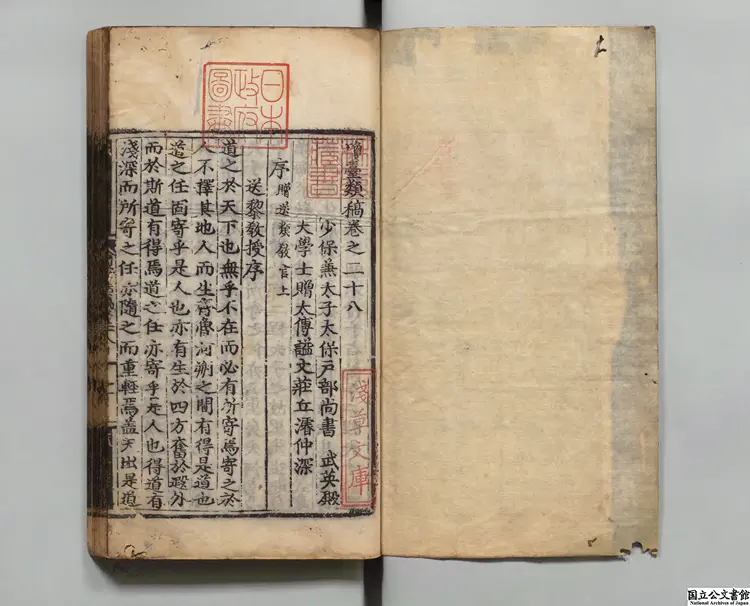 瓊臺類稿卷之二十八
少保兼太子太保戶部尚書 武英殿
大學士贈太傅謚文莊丘濬仲深
序贈送類教官上
送黎教授序
道之於天下也無乎不在而必有所寄焉寄之於
人不擇其地人而生齊魯河朔之間有得是道也
道之任固寄乎是人也亦有生於四方奮於遐分
而於斯道有得焉道之任亦寄乎是人也得道有
淺深而所寄之任亦隨之而重輕焉蓋天出是道
日本
政府
圖書
淺草文庫
国立公文書館
National Archives of Japan